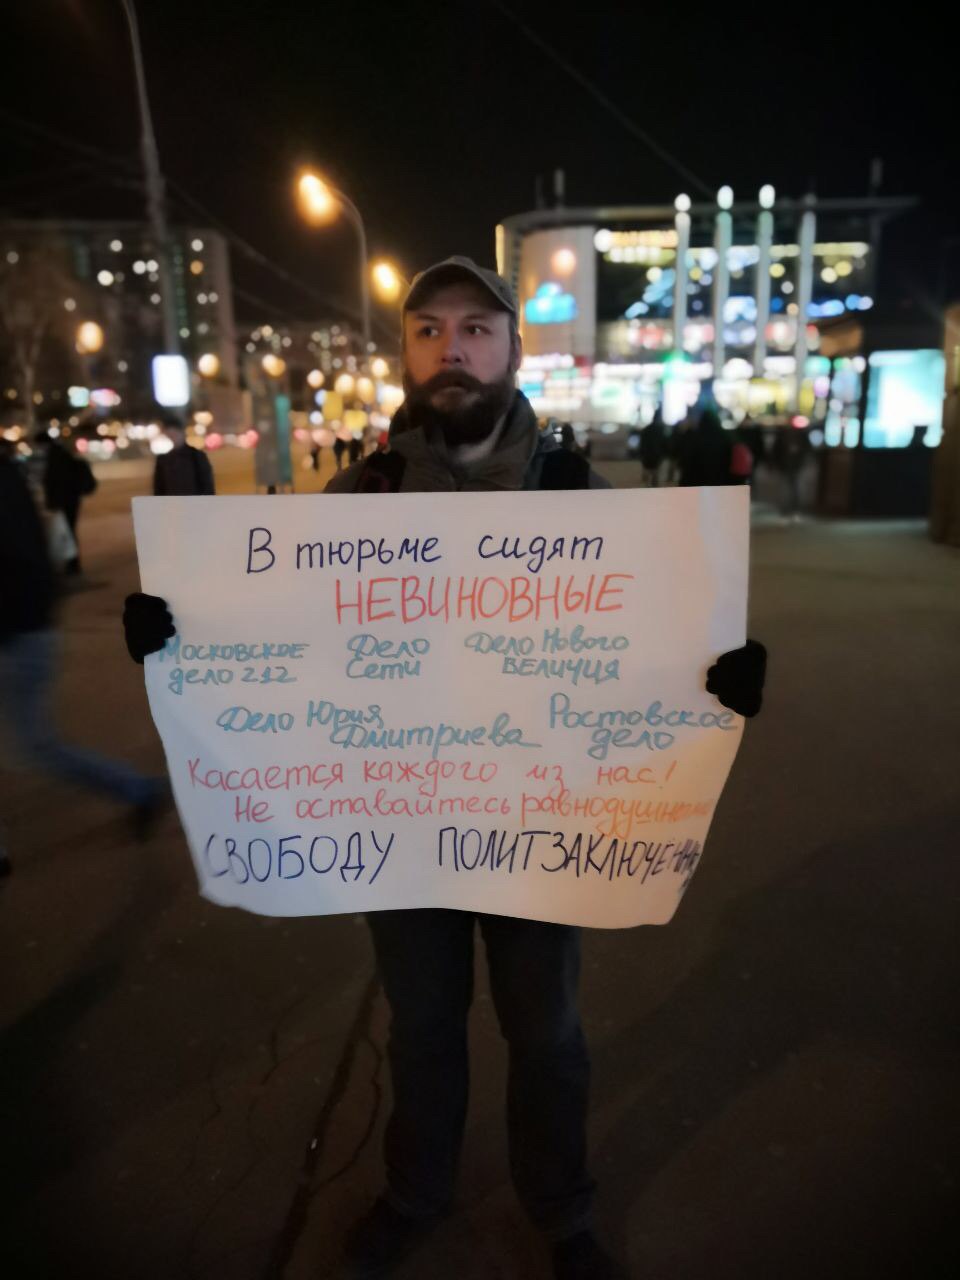 В тюрьме сидят
НЕВИНОВНЫЕ
Московское
дело 212
Дело
Сети
Дело Нового
ВЕЛИЧИЯ
Дело Юрия
Дмитриева
Ростовское
дело
Касается каждого из нас!
Не оставайтесь равнодушными
СВОБОДУ ПОЛИТЗАКЛЮЧЕННЫМ